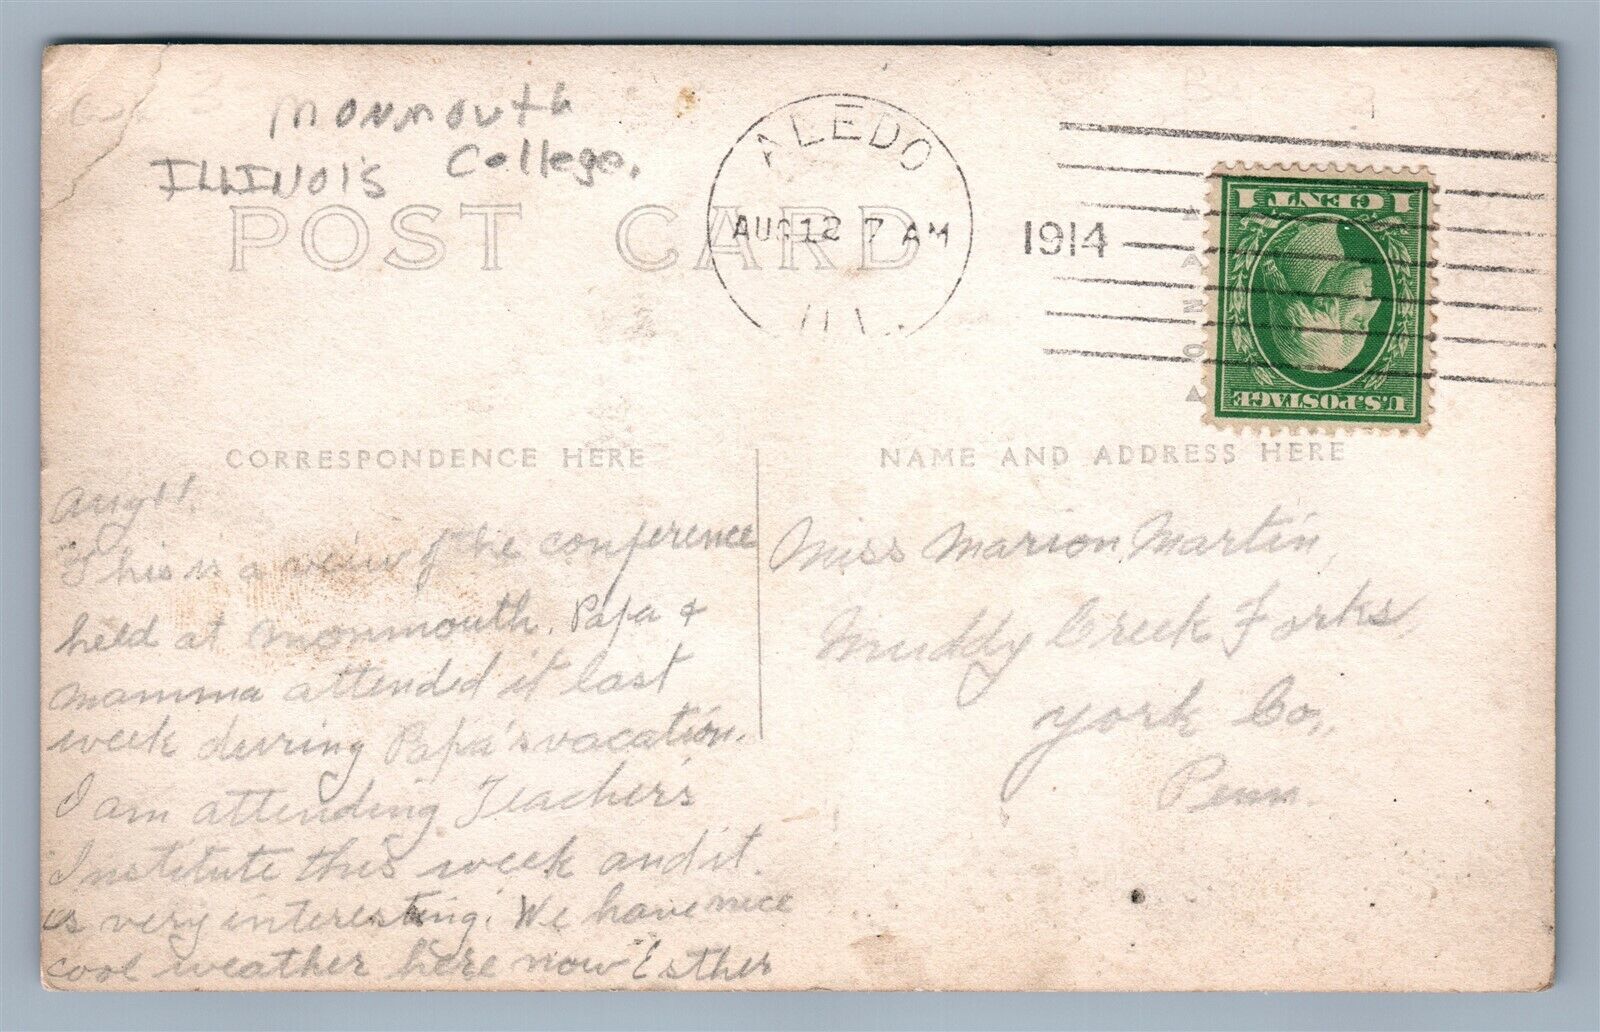 Monmouth
ILLINOIS College.
POST CARD
ALEDO
AUG 12 7 AM
ILL.
1914
1 CENT 1
U.S. POSTAGE
AZO
CORRESPONDENCE HERE
NAME AND ADDRESS HERE
Aug 11.
This is a view of the conference
held at Monmouth. Papa &
Mamma attended it last
week during Papa's vacation.
I am attending Teacher's
Institute this week and it
is very interesting. We have nice
cool weather here now Esther
Miss Marion Martin,
Muddy Creek Forks,
York Co.,
Penn.